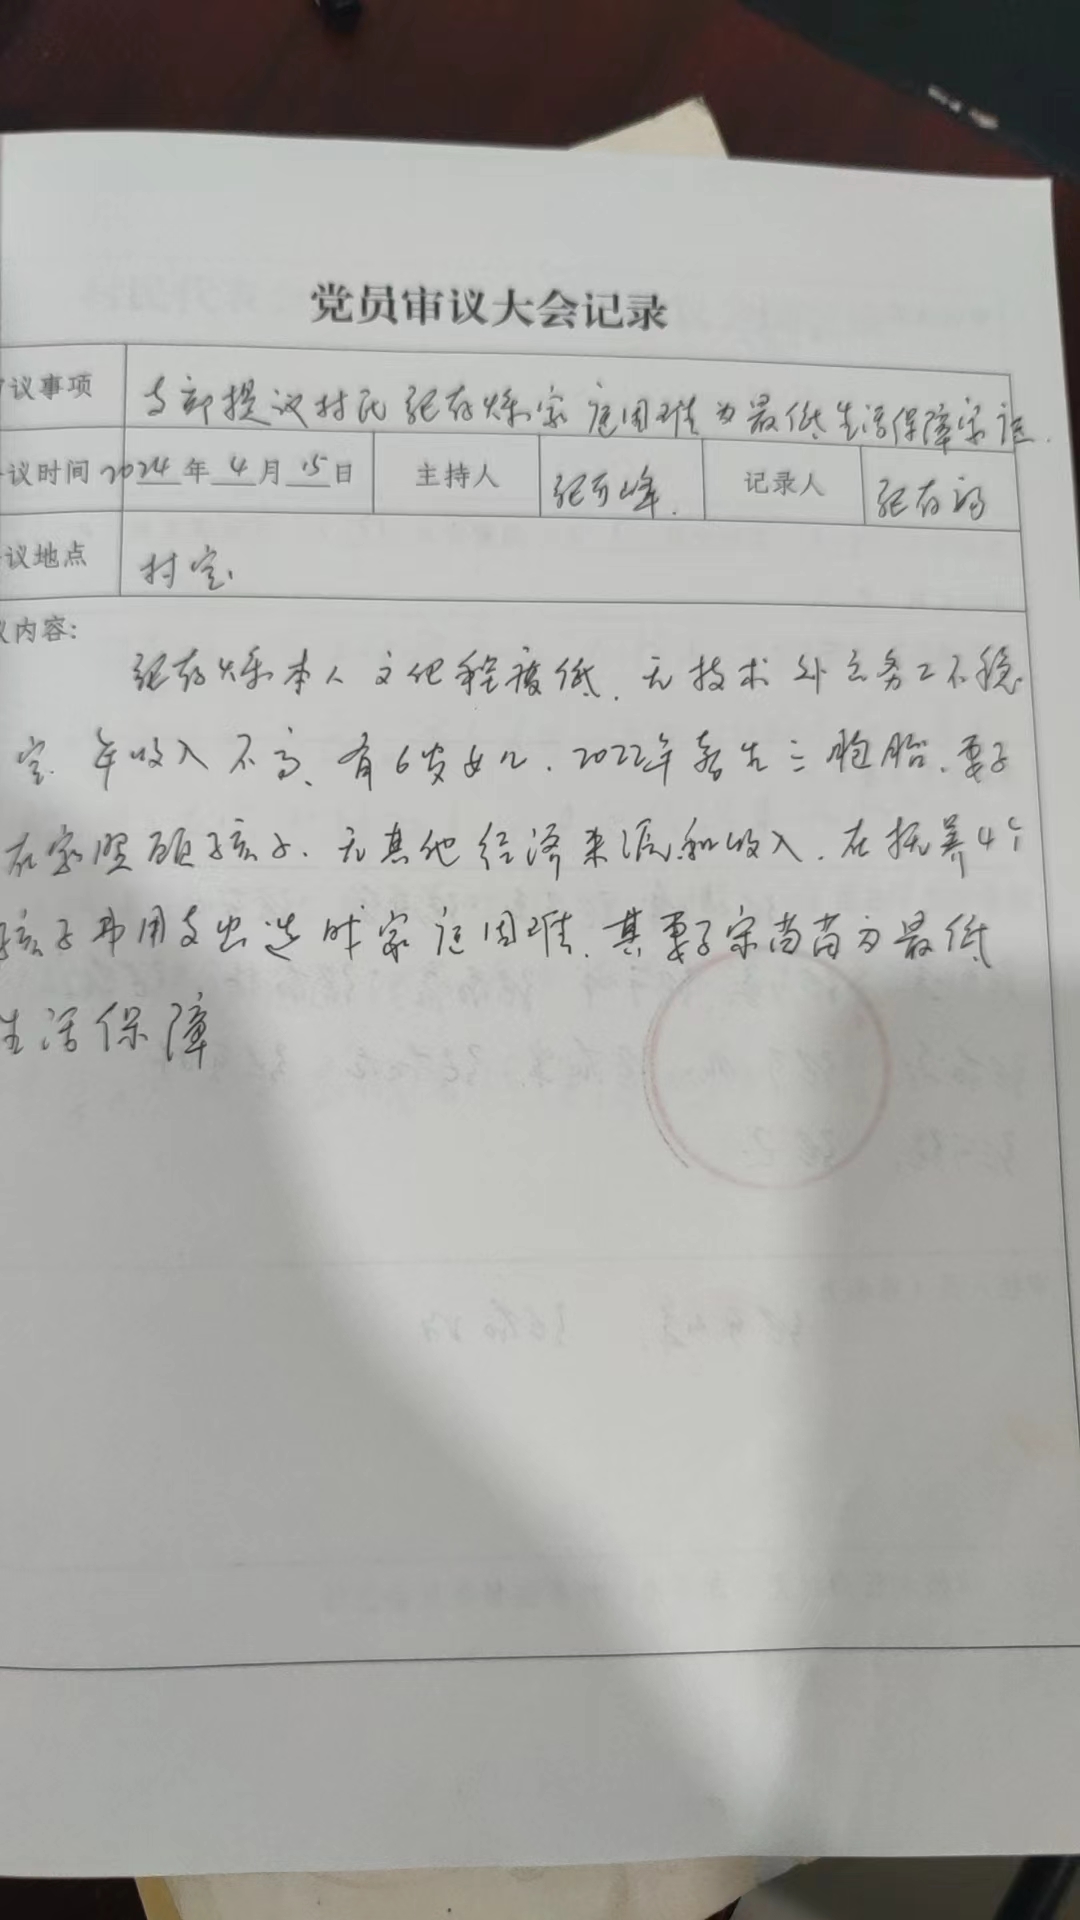 党员审议大会记录
议事项 支部提议村民张存烁家庭困难为最低生活保障家庭.
议时间 2024年4月15日 主持人 张万峰. 记录人 张存
议地点 村室.
议内容:
张存烁本人文化程度低、无技术外出务工不稳
定、年收入不高、有6岁女儿、2022年喜生三胞胎、妻子
在家照顾孩子、无其他经济来源和收入、在抚养4个
孩子费用支出造成家庭困难、其妻子宋苗苗为最低
生活保障